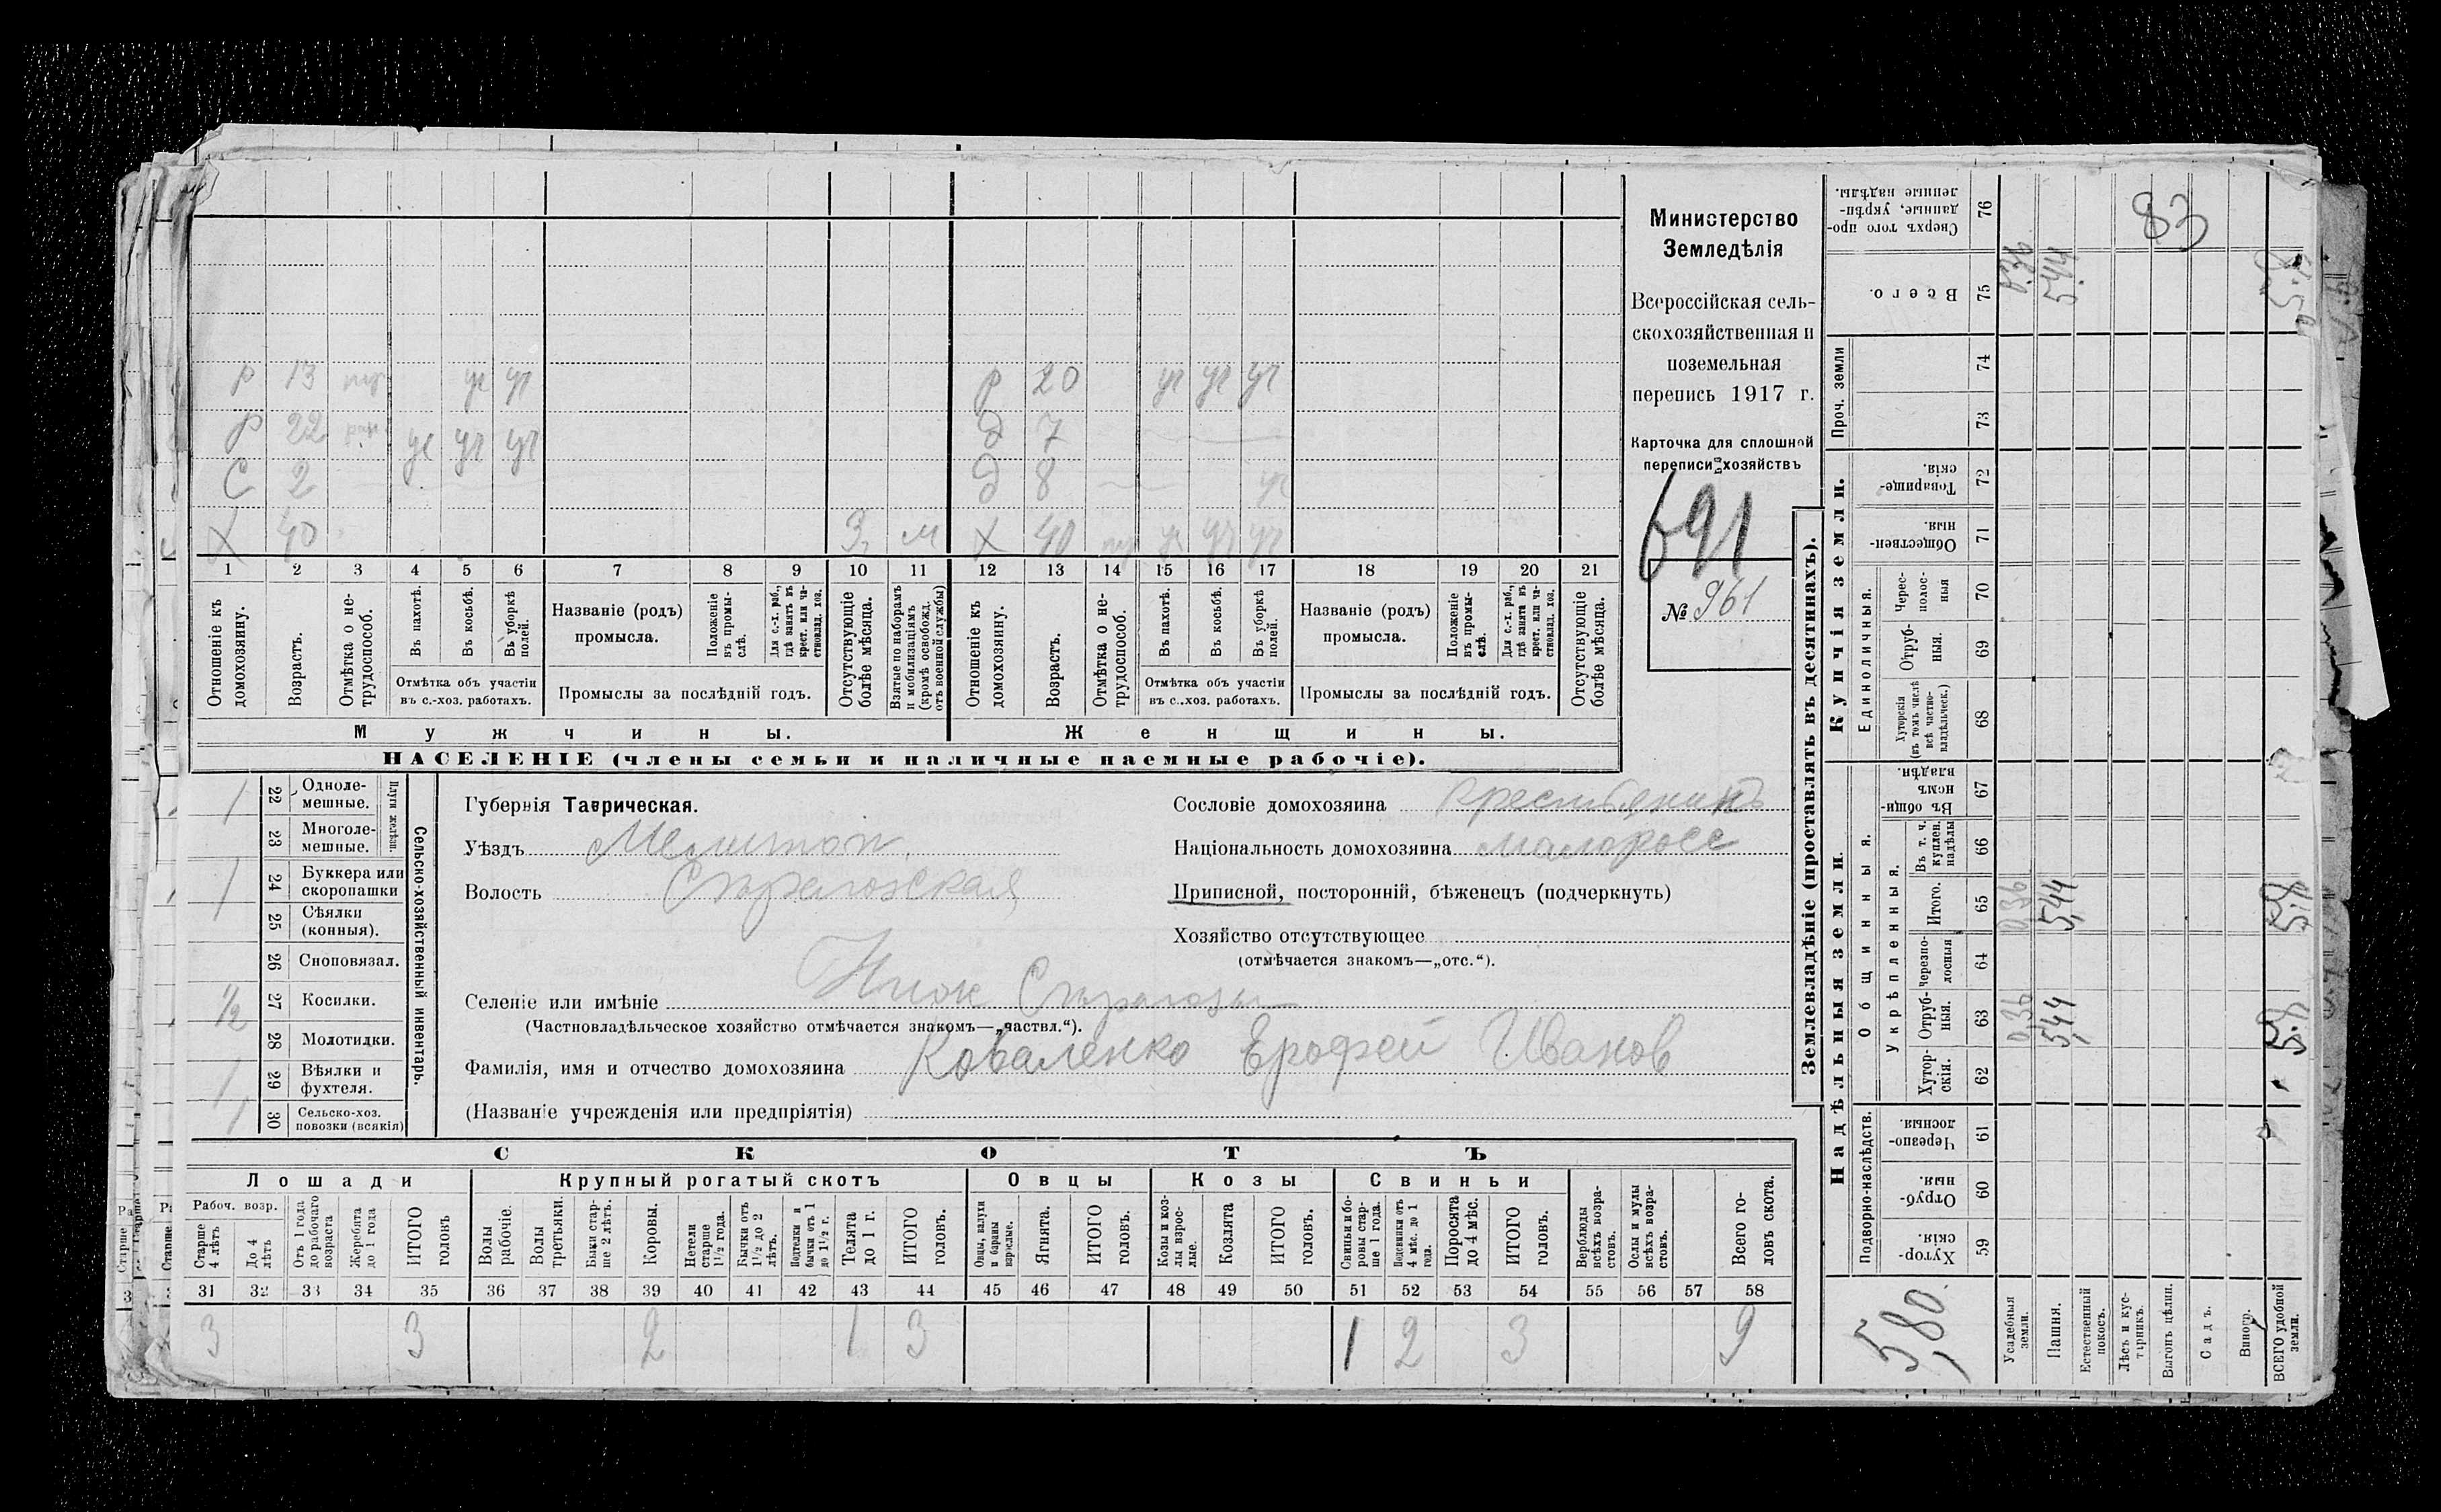 р 13 уч уч р 20 уч уч уч
р 22 уч уч уч д 7
С 2 д 8 уч
Х 40 З м Х 40 уч уч уч
1 2 3 4 5 6 7 8 9 10 11 12 13 14 15 16 17 18 19 20 21
Отношеніе къ домохозяину.
Возрастъ.
Отмѣтка о не-трудоспособ.
Въ пахотѣ.
Въ косьбѣ.
Въ уборкѣ полей.
Отмѣтка объ участіи
въ с.-хоз. работахъ.
Названіе (родъ)
промысла.
Положеніе въ промы-слѣ.
Для с.-х. раб., гдѣ занятъ въ крест. или ча-стновлад. хоз.
Промыслы за послѣдній годъ.
Отсутствующіе болѣе мѣсяца.
Взятые по наборамъ и мобилизаціямъ (кромѣ освобожд. отъ военной службы)
Отношеніе къ домохозяину.
Возрастъ.
Отмѣтка о не-трудоспособ.
Въ пахотѣ.
Въ косьбѣ.
Въ уборкѣ полей.
Отмѣтка объ участіи
въ с.-хоз. работахъ.
Названіе (родъ)
промысла.
Положеніе въ промы-слѣ.
Для с.-х. раб., гдѣ занята въ крест. или ча-стновлад. хоз.
Промыслы за послѣдній годъ.
Отсутствующіе болѣе мѣсяца.
Мужчины.
Женщины.
НАСЕЛЕНІЕ (члены семьи и наличные наемные рабочіе).
Министерство
Земледѣлія
Всероссійская сель-
скохозяйственная и
поземельная
перепись 1917 г.
Карточка для сплошной
переписи хозяйствъ
691
№ 961
1 22 Одноле-мешные.
23 Многоле-мешные.
Плуги желѣзн.
1 24 Буккера или скоропашки
25 Сѣялки (конныя).
26 Сноповязал.
1/2 27 Косилки.
28 Молотилки.
1 29 Вѣялки и фухтеля.
1 30 Сельско-хоз. повозки (всякія)
Сельско-хозяйственный инвентарь.
Губернія Таврическая.
Уѣздъ Мелитоп.
Волость Сѣрогозская
Селеніе или имѣніе Ниж Сѣрогозы
(Частновладѣльческое хозяйство отмѣчается знакомъ—„частвл.“).
Фамилія, имя и отчество домохозяина Коваленко Ерофей Иванов
(Названіе учрежденія или предпріятія)
Сословіе домохозяина крестьянинъ
Національность домохозяина малоросс
Приписной, посторонній, бѣженецъ (подчеркнуть)
Хозяйство отсутствующее
(отмѣчается знакомъ—„отс.“).
СКОТЪ
Лошади
Крупный рогатый скотъ
Овцы
Козы
Свиньи
Рабоч. возр.
Старше 4 лѣтъ
До 4 лѣтъ
Отъ 1 года до рабочаго возраста
Жеребята до 1 года
ИТОГО головъ
Волы рабочіе.
Волы третьяки.
Быки стар-ше 2 лѣтъ.
Коровы.
Нетели старше 1½ года.
Бычки отъ 1½ до 2 лѣтъ.
Подтелки и бычки отъ 1 до 1½ г.
Телята до 1 г.
ИТОГО головъ.
Овцы, валухи и бараны взрослые.
Ягнята.
ИТОГО головъ.
Козы и коз-лы взрос-лые.
Козлята
ИТОГО головъ.
Свиньи и бо-ровы стар-ше 1 года.
Подсвинки отъ 4 мѣс. до 1 года.
Поросята до 4 мѣс.
ИТОГО головъ.
Верблюды всѣхъ возра-стовъ.
Ослы и мулы всѣхъ возра-стовъ.
Всего го-ловъ скота.
31 32 33 34 35 36 37 38 39 40 41 42 43 44 45 46 47 48 49 50 51 52 53 54 55 56 57 58
3 3 2 1 3 1 2 3 9
Землевладѣніе (проставлять въ десятинахъ).
Надѣльныя земли.
Купчія земли.
Проч. земли
Подворно-наслѣдств.
Общинныя.
Укрѣпленныя.
Единоличныя.
Хутор-скія. 59
Отруб-ныя. 60
Черезпо-лосныя. 61
Хутор-скія. 62
Отруб-ныя. 63
черезпо-лосныя 64
Итого. 65
Въ т. ч. куплен. надѣлы 66
Въ общин-номъ владѣн. 67
Хуторскія (въ томъ числѣ всѣ частно-владѣльческ.) 68
Отруб-ныя. 69
Черес-полос-ныя 70
Обществен-ныя. 71
Товарище-скія. 72
73
74
Всего. 75
Сверхъ того про-данные, укрѣп-ленные надѣлы. 76
5,80
Усадебныя земли. 0,36 0,36 0,36
Пашня. 5,44 5,44 5,44
Естественный покосъ.
Лѣсъ и кус-тарникъ.
Выгонъ цѣлин.
Садъ.
Виногр.
ВСЕГО удобной земли.
83